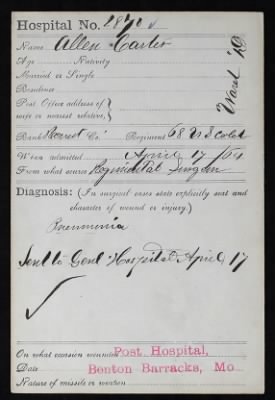 Hospital No. 2870
Name Allen Carter
Ward D
Age Nativity
Married or Single
Residence
Post Office address of
wife or nearest relative,
Rank Co. Regiment 68 U S Cold
When admitted April 17 /64
From what source Regimental Surgeon
Diagnosis: (In surgical cases state explicitly seat and
character of wound or injury.)
Pneumonia
Sent to Genl Hospital April 17
On what occasion wounded
Post Hospital,
Date
Benton Barracks, Mo
Nature of missile or weapon